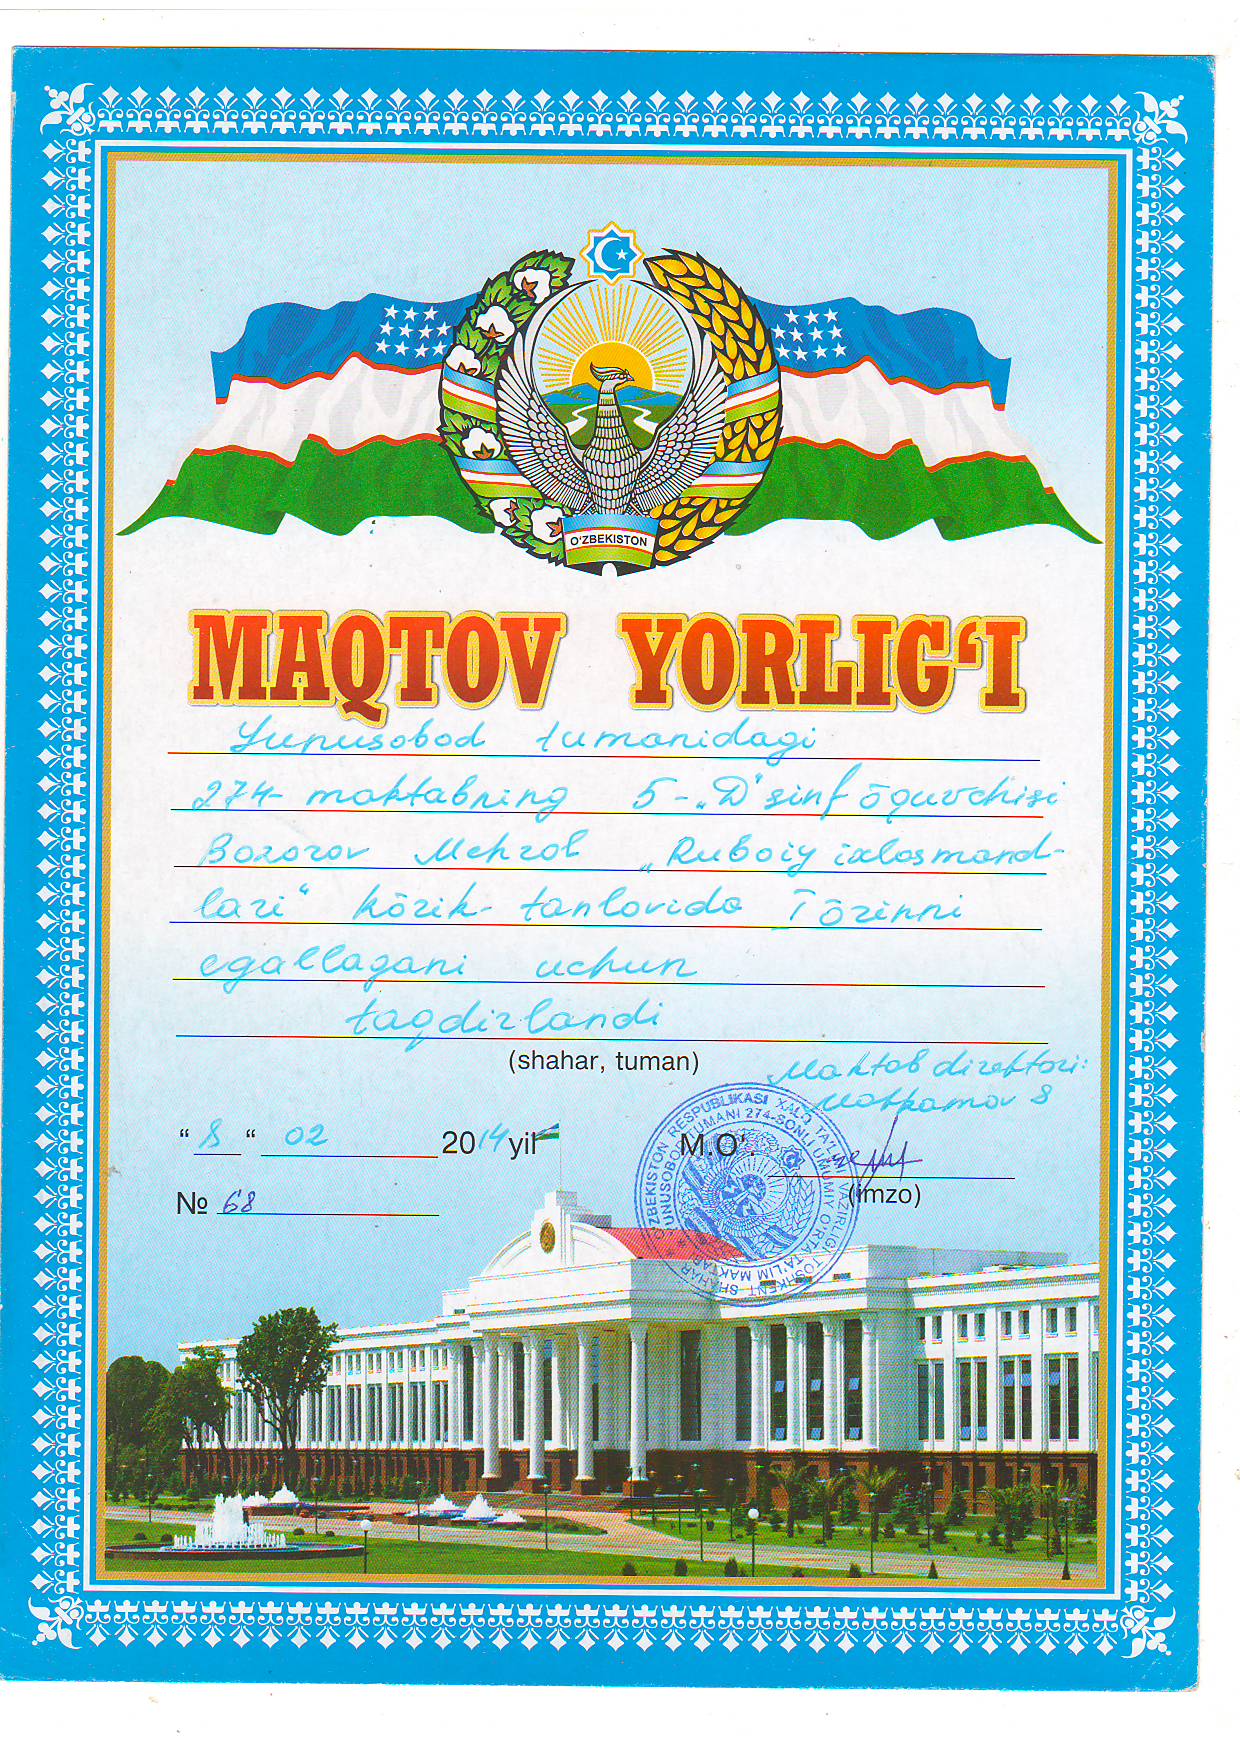 O'ZBEKISTON
MAQTOV YORLIG‘I
Yunusobod tumanidagi
274- maktabning 5-„D" sinf õquvchisi
Bozorov Mehrob „Ruboiy ixlosmand-
lari“ kõrik- tanlovida I õrinni
egallagani uchun
taqdirlandi
(shahar, tuman)
Maktab direktori:
“ 8 “ 02 2014 yil M.O‘.
(imzo)
№ 68
O'ZBEKISTON RESPUBLIKASI XALQ TA'LIMI VAZIRLIGI TOSHKENT SHAHAR
YUNUSOBOD TUMANI 274-SONLI UMUMIY O'RTA TA'LIM MAKTABI